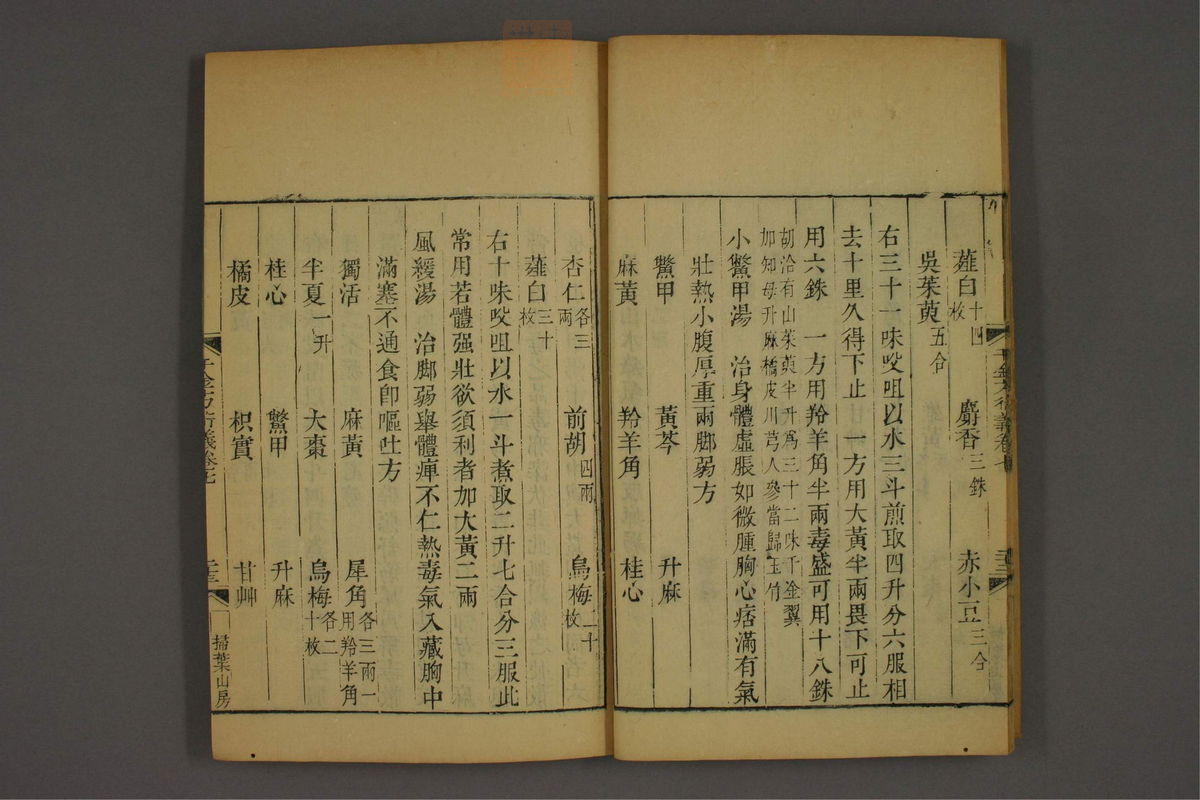 薤白十四枚　麝香三銖　赤小豆三合
吳茱萸五合
右三十一味㕮咀以水三斗煎取四升分六服相
去十里久得下止　一方用大黃半兩畏下可止
用六銖　一方用羚羊角半兩毒盛可用十八銖
胡洽有山茱萸半升爲三十二味千金翼
加知母升麻橘皮川芎人參當歸玉竹
小鱉甲湯　治身體虛脹如微腫胸心痞滿有氣
壯熱小腹厚重兩脚弱方
鱉甲　黃芩　升麻
麻黃　羚羊角　桂心
杏仁各三兩　前胡四兩　烏梅二十枚
薤白三十枚
右十味㕮咀以水一斗煮取二升七合分三服此
常用若體强壯欲須利者加大黃二兩
風緩湯　治脚弱舉體痹不仁熱毒氣入藏胸中
滿塞不通食卽嘔吐方
獨活　麻黃　犀角各三兩一用羚羊角
半夏一升　大棗　烏梅各二十枚
桂心　鱉甲　升麻
橘皮　枳實　甘艸
千金方衍義卷七
掃葉山房